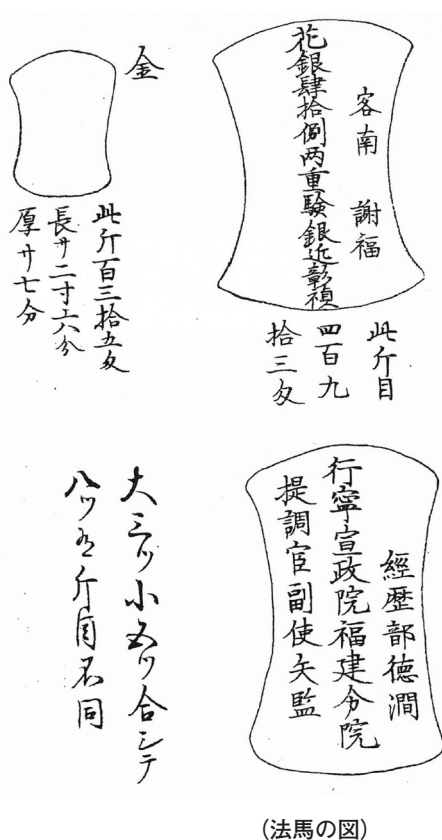 客南　謝福
花銀肆拾例両重験銀近彰禎
此斤目
四百九
拾三匁
金
此斤百三拾五匁
長サ二寸六分
厚サ七分
經歴部德澗
行寧宣政院福建分院
提調官副使矢監
大三ツ小五ツ合シテ
八ツ有斤目不同
(法馬の図)